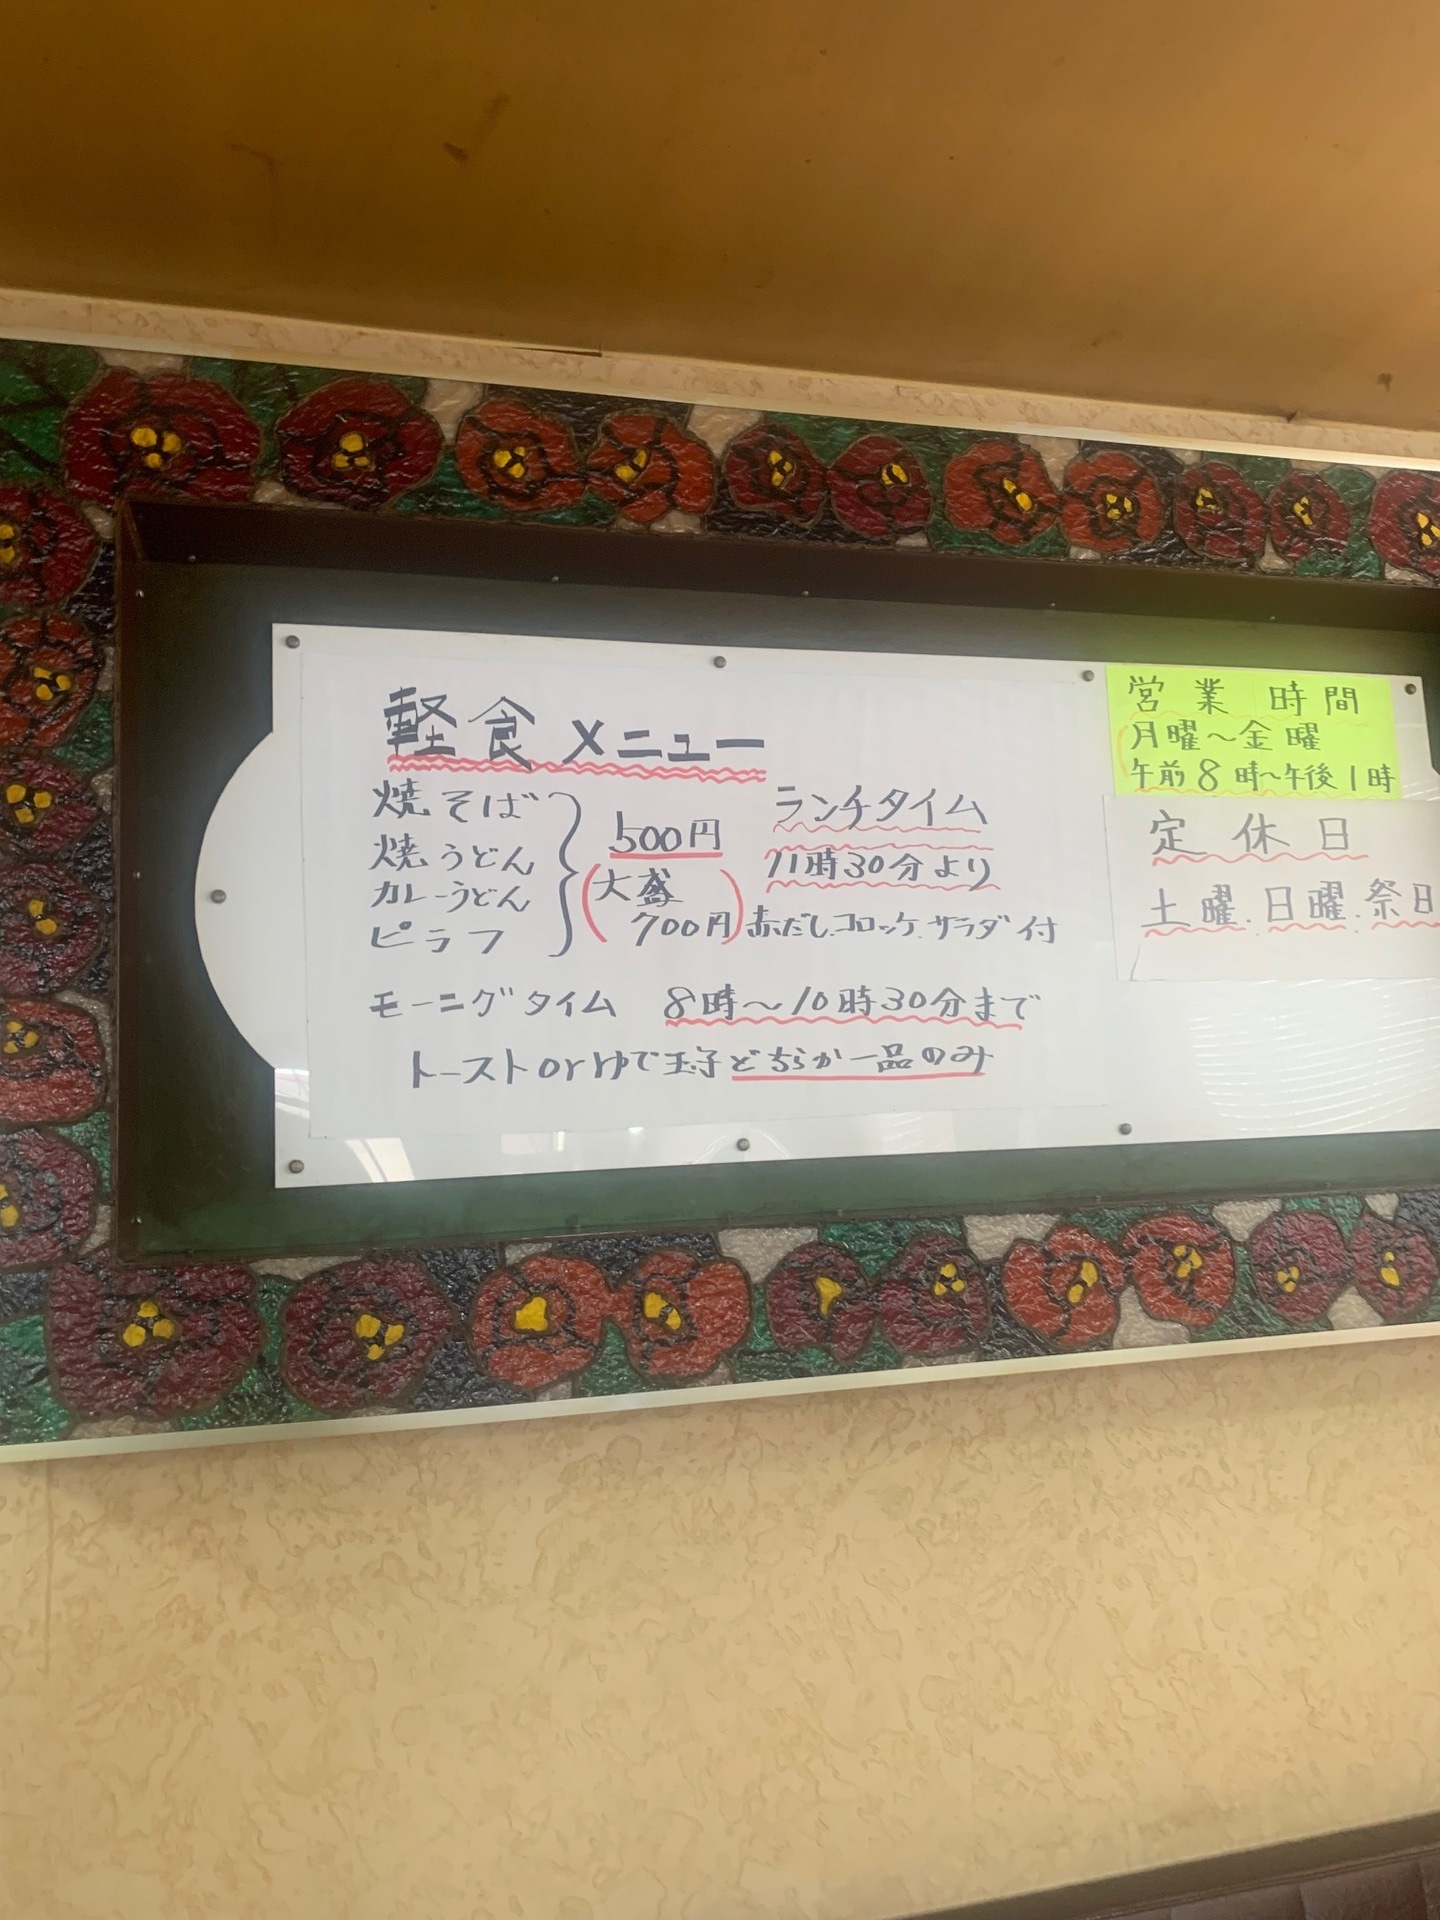 軽食メニュー
焼そば
焼うどん
カレーうどん
ピラフ
500円
(大盛
700円)
ランチタイム
11時30分より
赤だし.コロッケ.サラダ付
モーニングタイム 8時〜10時30分まで
トーストorゆで玉子どちらか一品のみ
営業時間
月曜〜金曜
午前8時〜午後1時
定休日
土曜.日曜.祭日